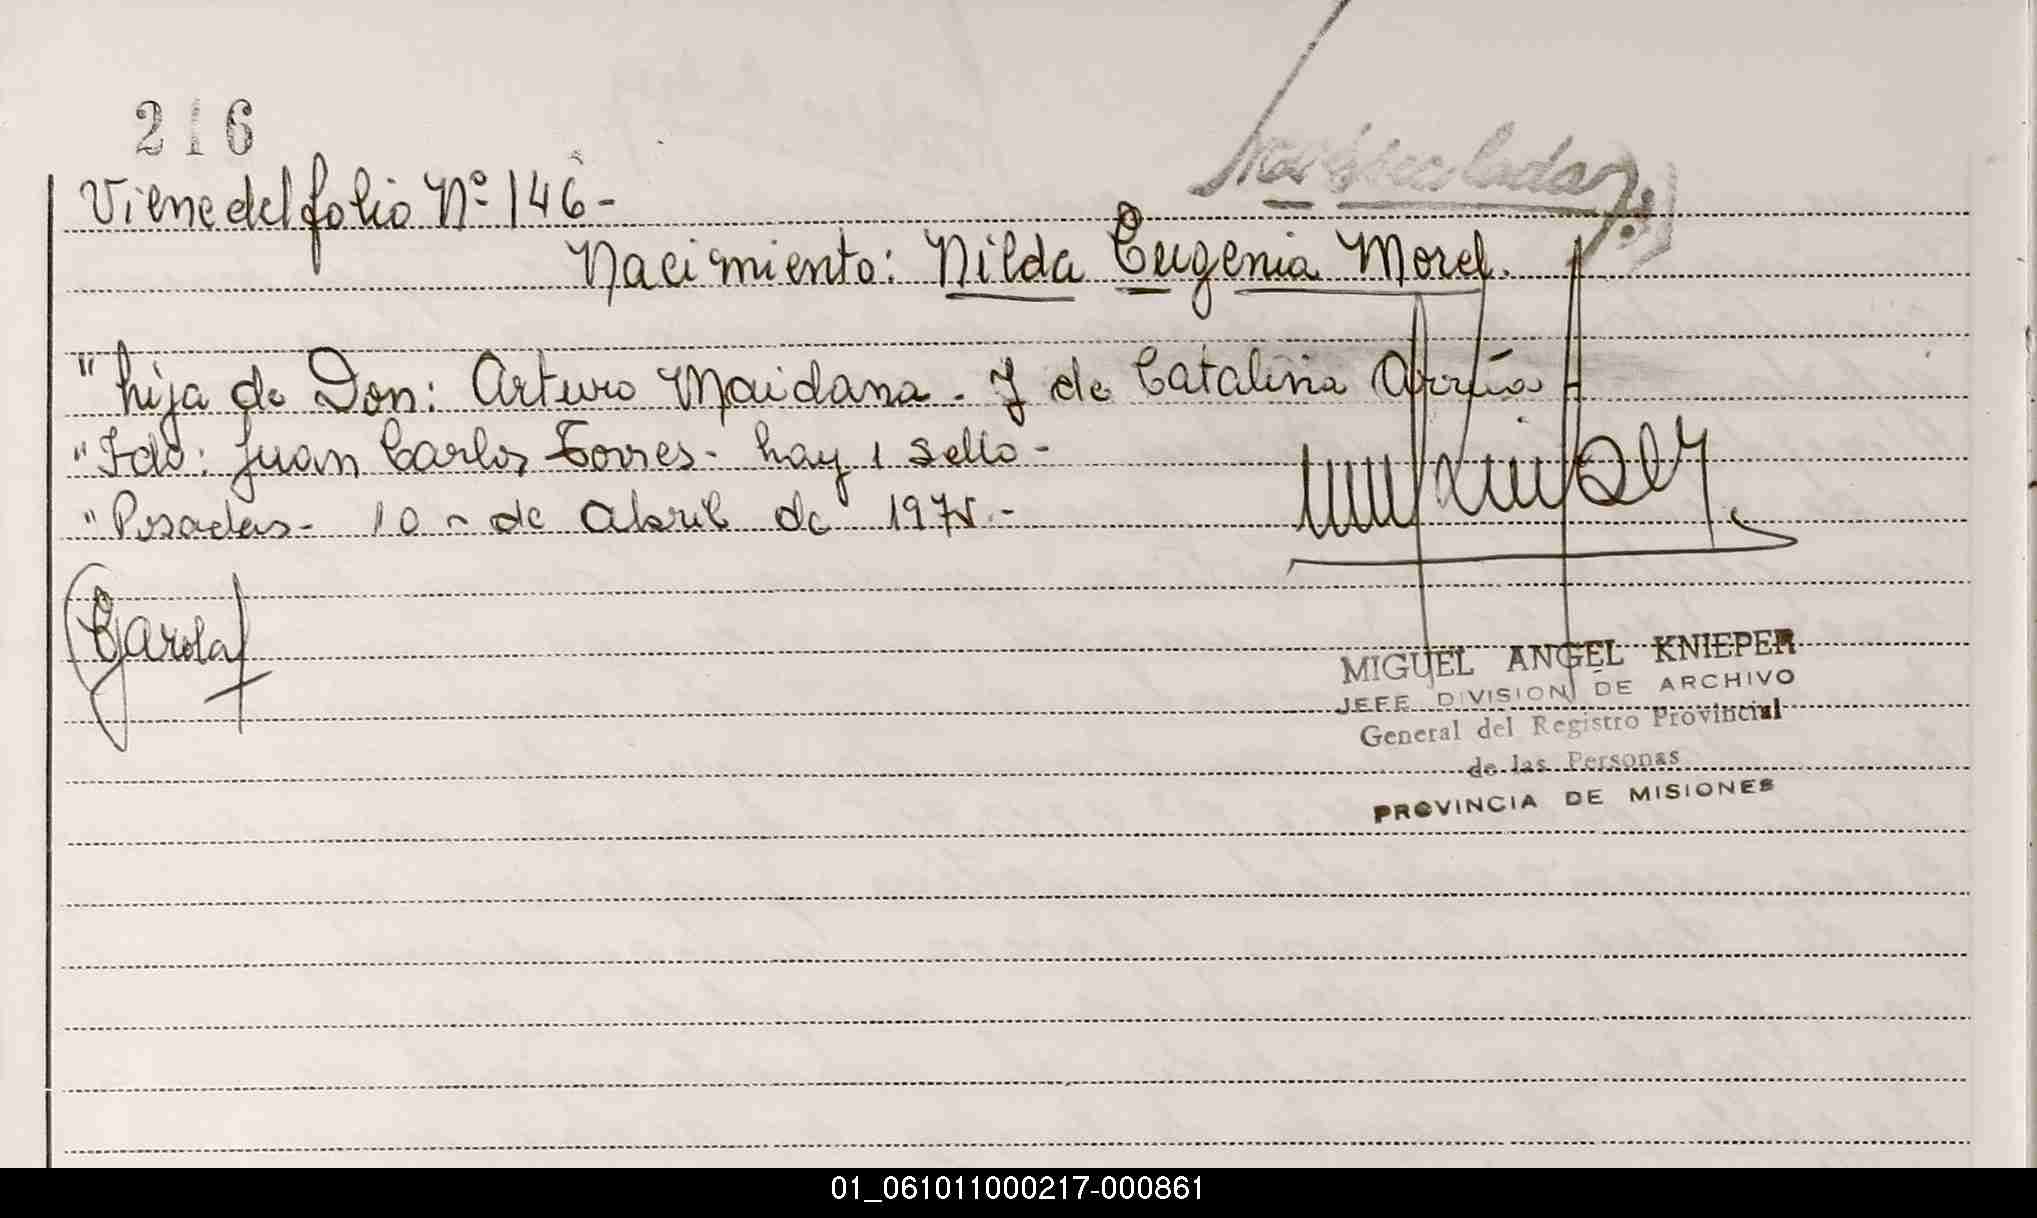 216
Viene del folio Nº 146-
Nacimiento: Nilda Eugenia Morel.
"hija de Don: Arturo Maidana. Y de Catalina
"Fdo: Juan Carlos Torres- hay 1 sello-
"Posadas- 10 - de Abril de 1975.-
MIGUEL ANGEL KNIEPER
JEFE DIVISION DE ARCHIVO
General del Registro Provincial
de las Personas
PROVINCIA DE MISIONES
01_061011000217-000861